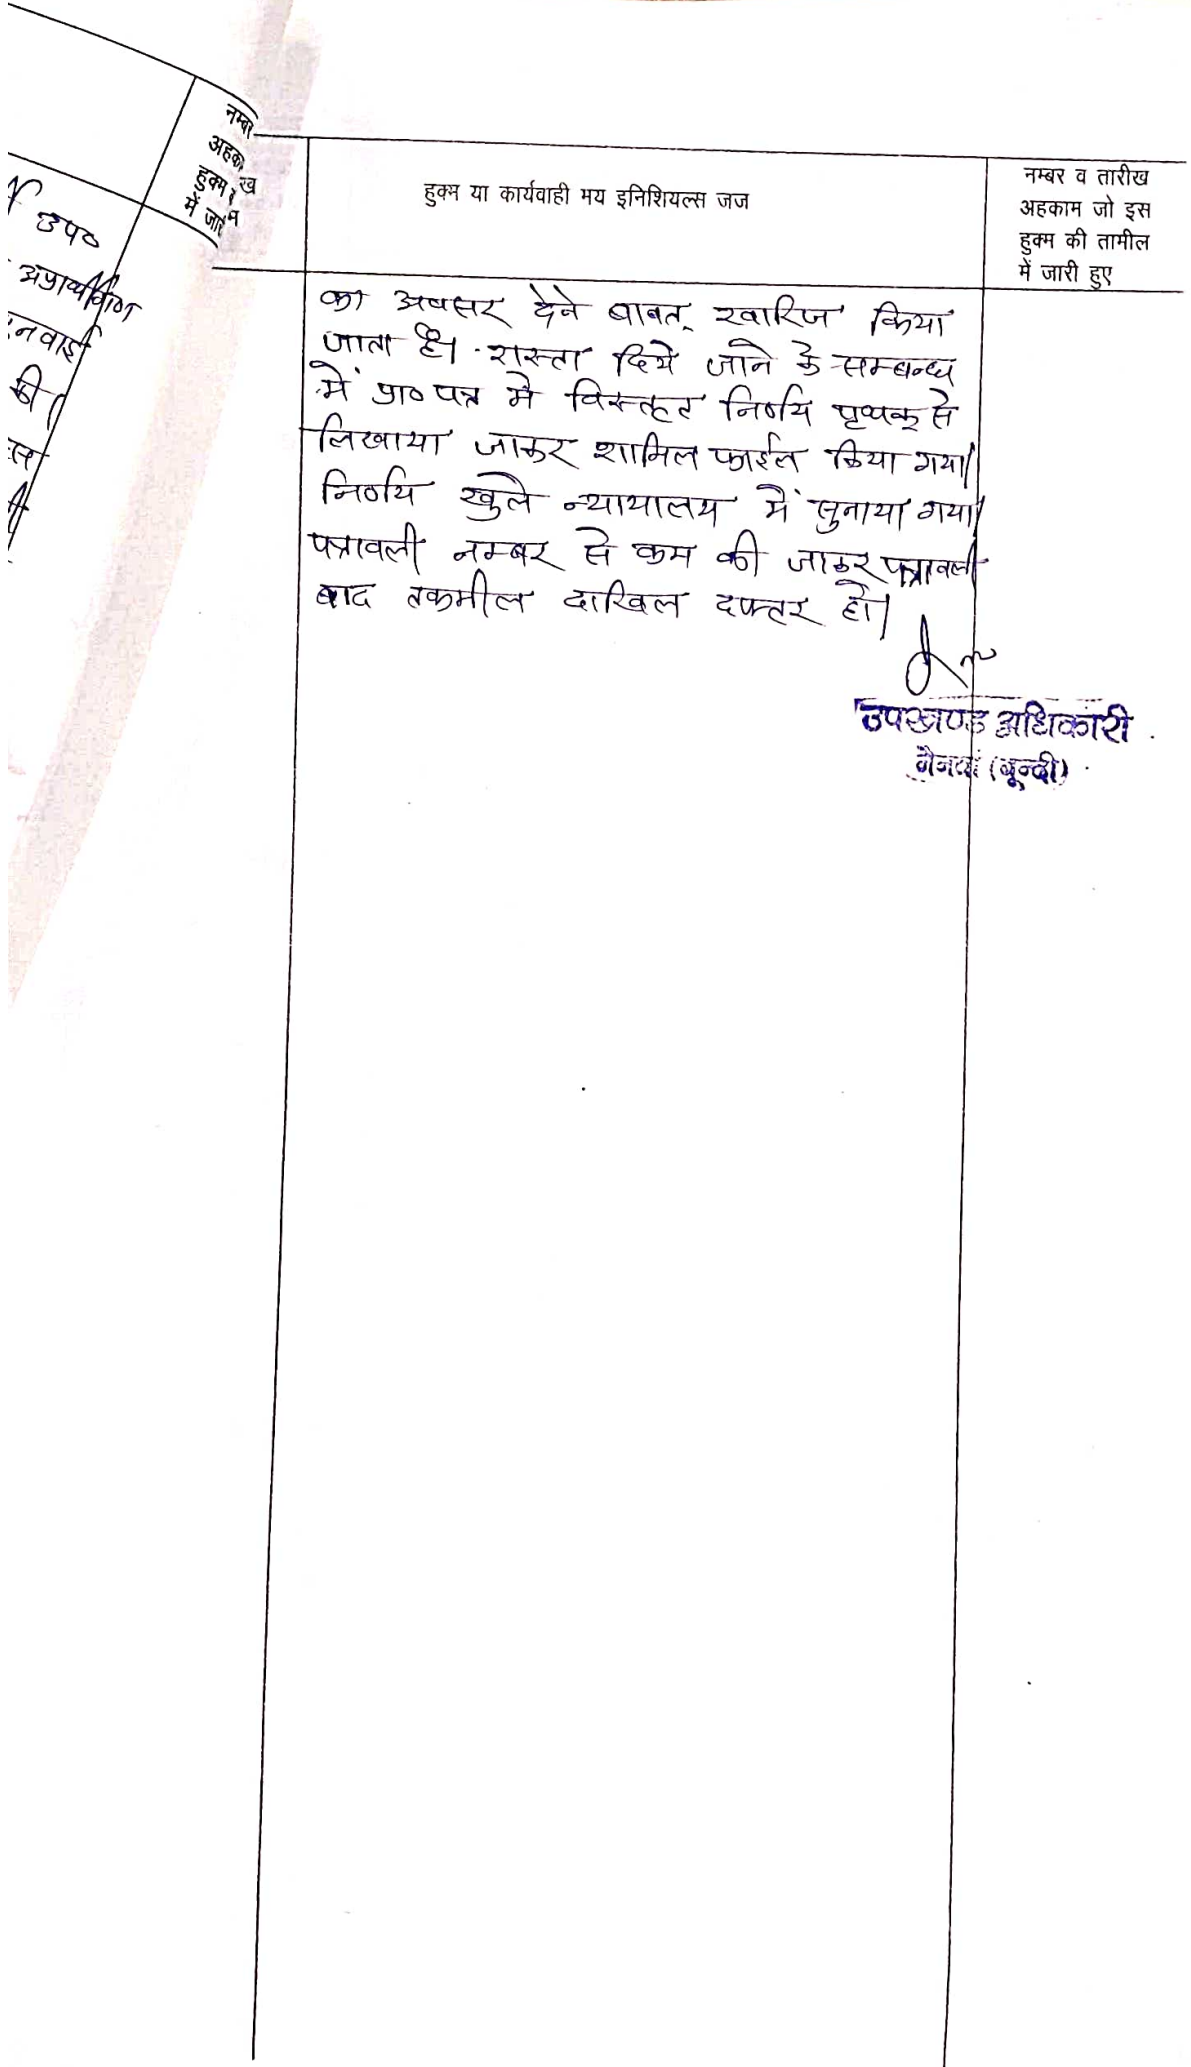 नम्बर
अहका
हुक्म
में जारी
उप०
अप्रार्थीगण
नवाई
की
हुक्म या कार्यवाही मय इनिशियल्स जज
नम्बर व तारीख
अहकाम जो इस
हुक्म की तामील
में जारी हुए
का अवसर देने बाबत् खारिज किया
जाता है। रास्ता दिये जाने के सम्बन्ध
में प्रा० पत्र में विस्तृत निर्णय पृथक् से
लिखाया जाकर शामिल फाईल किया गया।
निर्णय खुले न्यायालय में सुनाया गया।
पत्रावली नम्बर से कम की जाकर पत्रावली
बाद तकमील दाखिल दफ्तर हो।
उपखण्ड अधिकारी
नैनवां (बून्दी)